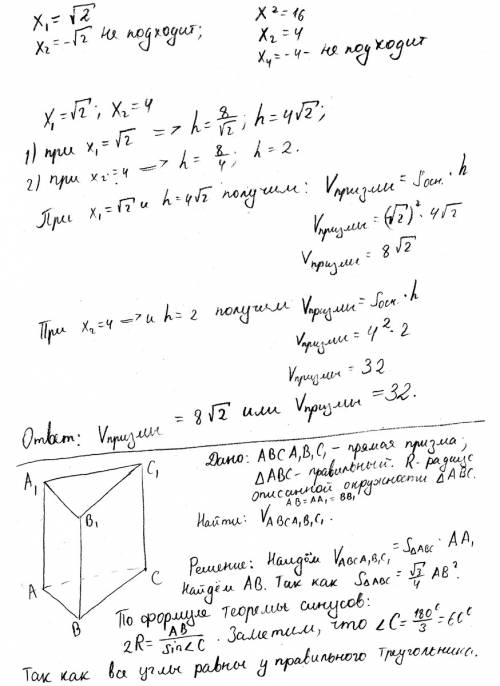 x₁ = √2
x₂ = -√2 не подходит;
x² = 16
x₂ = 4
x₄ = -4 - не подходит
x₁ = √2; x₂ = 4
1) при x₁ = √2 => h = 8/√2; h = 4√2;
2) при x₂ = 4 => h = 8/4; h = 2.
При x₁ = √2 и h = 4√2 получим: Vпризмы = Sосн. · h
Vпризмы = (√2)² · 4√2
Vпризмы = 8√2
При x₂ = 4 => и h = 2 получим Vпризмы = Sосн · h
Vпризмы = 4² · 2
Vпризмы = 32
Ответ: Vпризмы = 8√2 или Vпризмы = 32.
A₁
C₁
B₁
A
C
B
Дано: ABCA₁B₁C₁ - прямая призма;
ΔABC - правильный. R - радиус
описанной окружности ΔABC.
AB = AA₁ = BB₁
Найти: V ABCA₁B₁C₁.
Решение: Найдём V ABCA₁B₁C₁ = SΔABC · AA₁
Найдём AB. Так как SΔABC = √3/4 AB².
По формуле теоремы синусов:
2R = AB/sin∠C. Заметим, что ∠C = 180°/3 = 60°
Так как все углы равны у правильного треугольника.